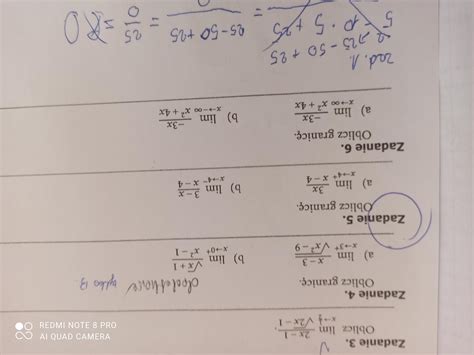 Zadanie 3.
Oblicz lim x→½ (2x − 1)/(√2x − 1).
Zadanie 4.
Oblicz granicę.
a) lim x→3⁺ (x − 3)/√(x² − 9) b) lim x→0⁺ (√x + 1)/(x² − 1)
Zadanie 5.
Oblicz granicę.
a) lim x→4⁺ 3x/(x − 4) b) lim x→4⁻ (3 − x)/(x − 4)
Zadanie 6.
Oblicz granicę.
a) lim x→∞ −3x/(x² + 4x) b) lim x→−∞ −3x/(x² + 4x)
zad. 1.
25 − 50 + 25
= 25 − 50 + 25 / 0 = 0/25 = 0
REDMI NOTE 8 PRO
AI QUAD CAMERA